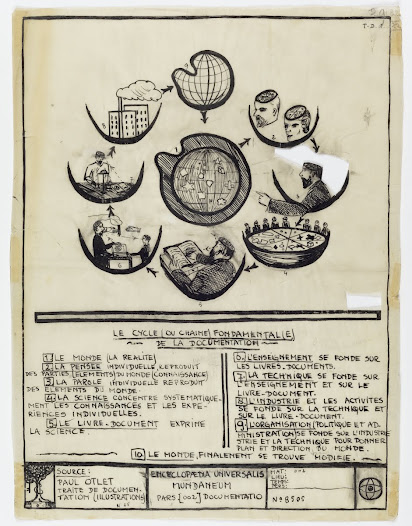 T-D
LE CYCLE (OU CHAINE) FONDAMENTAL(E)
DE LA DOCUMENTATION
1. LE MONDE (LA REALITE)
2. LA PENSEE INDIVIDUELLE REPRODUIT
DES PARTIES (ELEMENTS) DU MONDE (CONNAISSANCE)
3. LA PAROLE INDIVIDUELLE REPRODUIT
DES ELEMENTS DU MONDE
4. LA SCIENCE CONCENTRE SYSTEMATIQUE-
MENT LES CONNAISSANCES ET LES EXPE-
RIENCES INDIVIDUELLES
5. LE LIVRE-DOCUMENT EXPRIME
LA SCIENCE
6. L'ENSEIGNEMENT SE FONDE SUR
LES LIVRES-DOCUMENTS.
7. LA TECHNIQUE SE FONDE SUR
L'ENSEIGNEMENT ET SUR LE
LIVRE-DOCUMENT.
8. L'INDUSTRIE ET LES ACTIVITES
SE FONDE SUR LA TECHNIQUE ET
SUR LE LIVRE-DOCUMENT.
9. L'ORGANISATION (POLITIQUE ET AD.
MINISTRATION) SE FONDE SUR L'INDUSTRIE
ET LA TECHNIQUE POUR DONNER
PLAN ET DIRECTION DU MONDE.
10. LE MONDE, FINALEMENT SE TROUVE MODIFIE.
SOURCE:
PAUL OTLET
TRAITE DE DOCUMEN-
TATION (ILLUSTRATIONS)
ENCYCLOPAEDIA UNIVERSALIS
MUNDANEUM
PARS [002] DOCUMENTATIO
MAT:
LOCUS
TEMPUS
No 8505